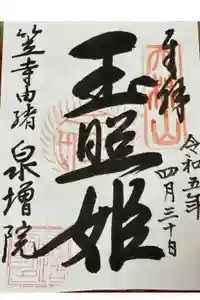 奉拝
令和五年
四月三十日
玉照姫
笠寺由緒
泉増院